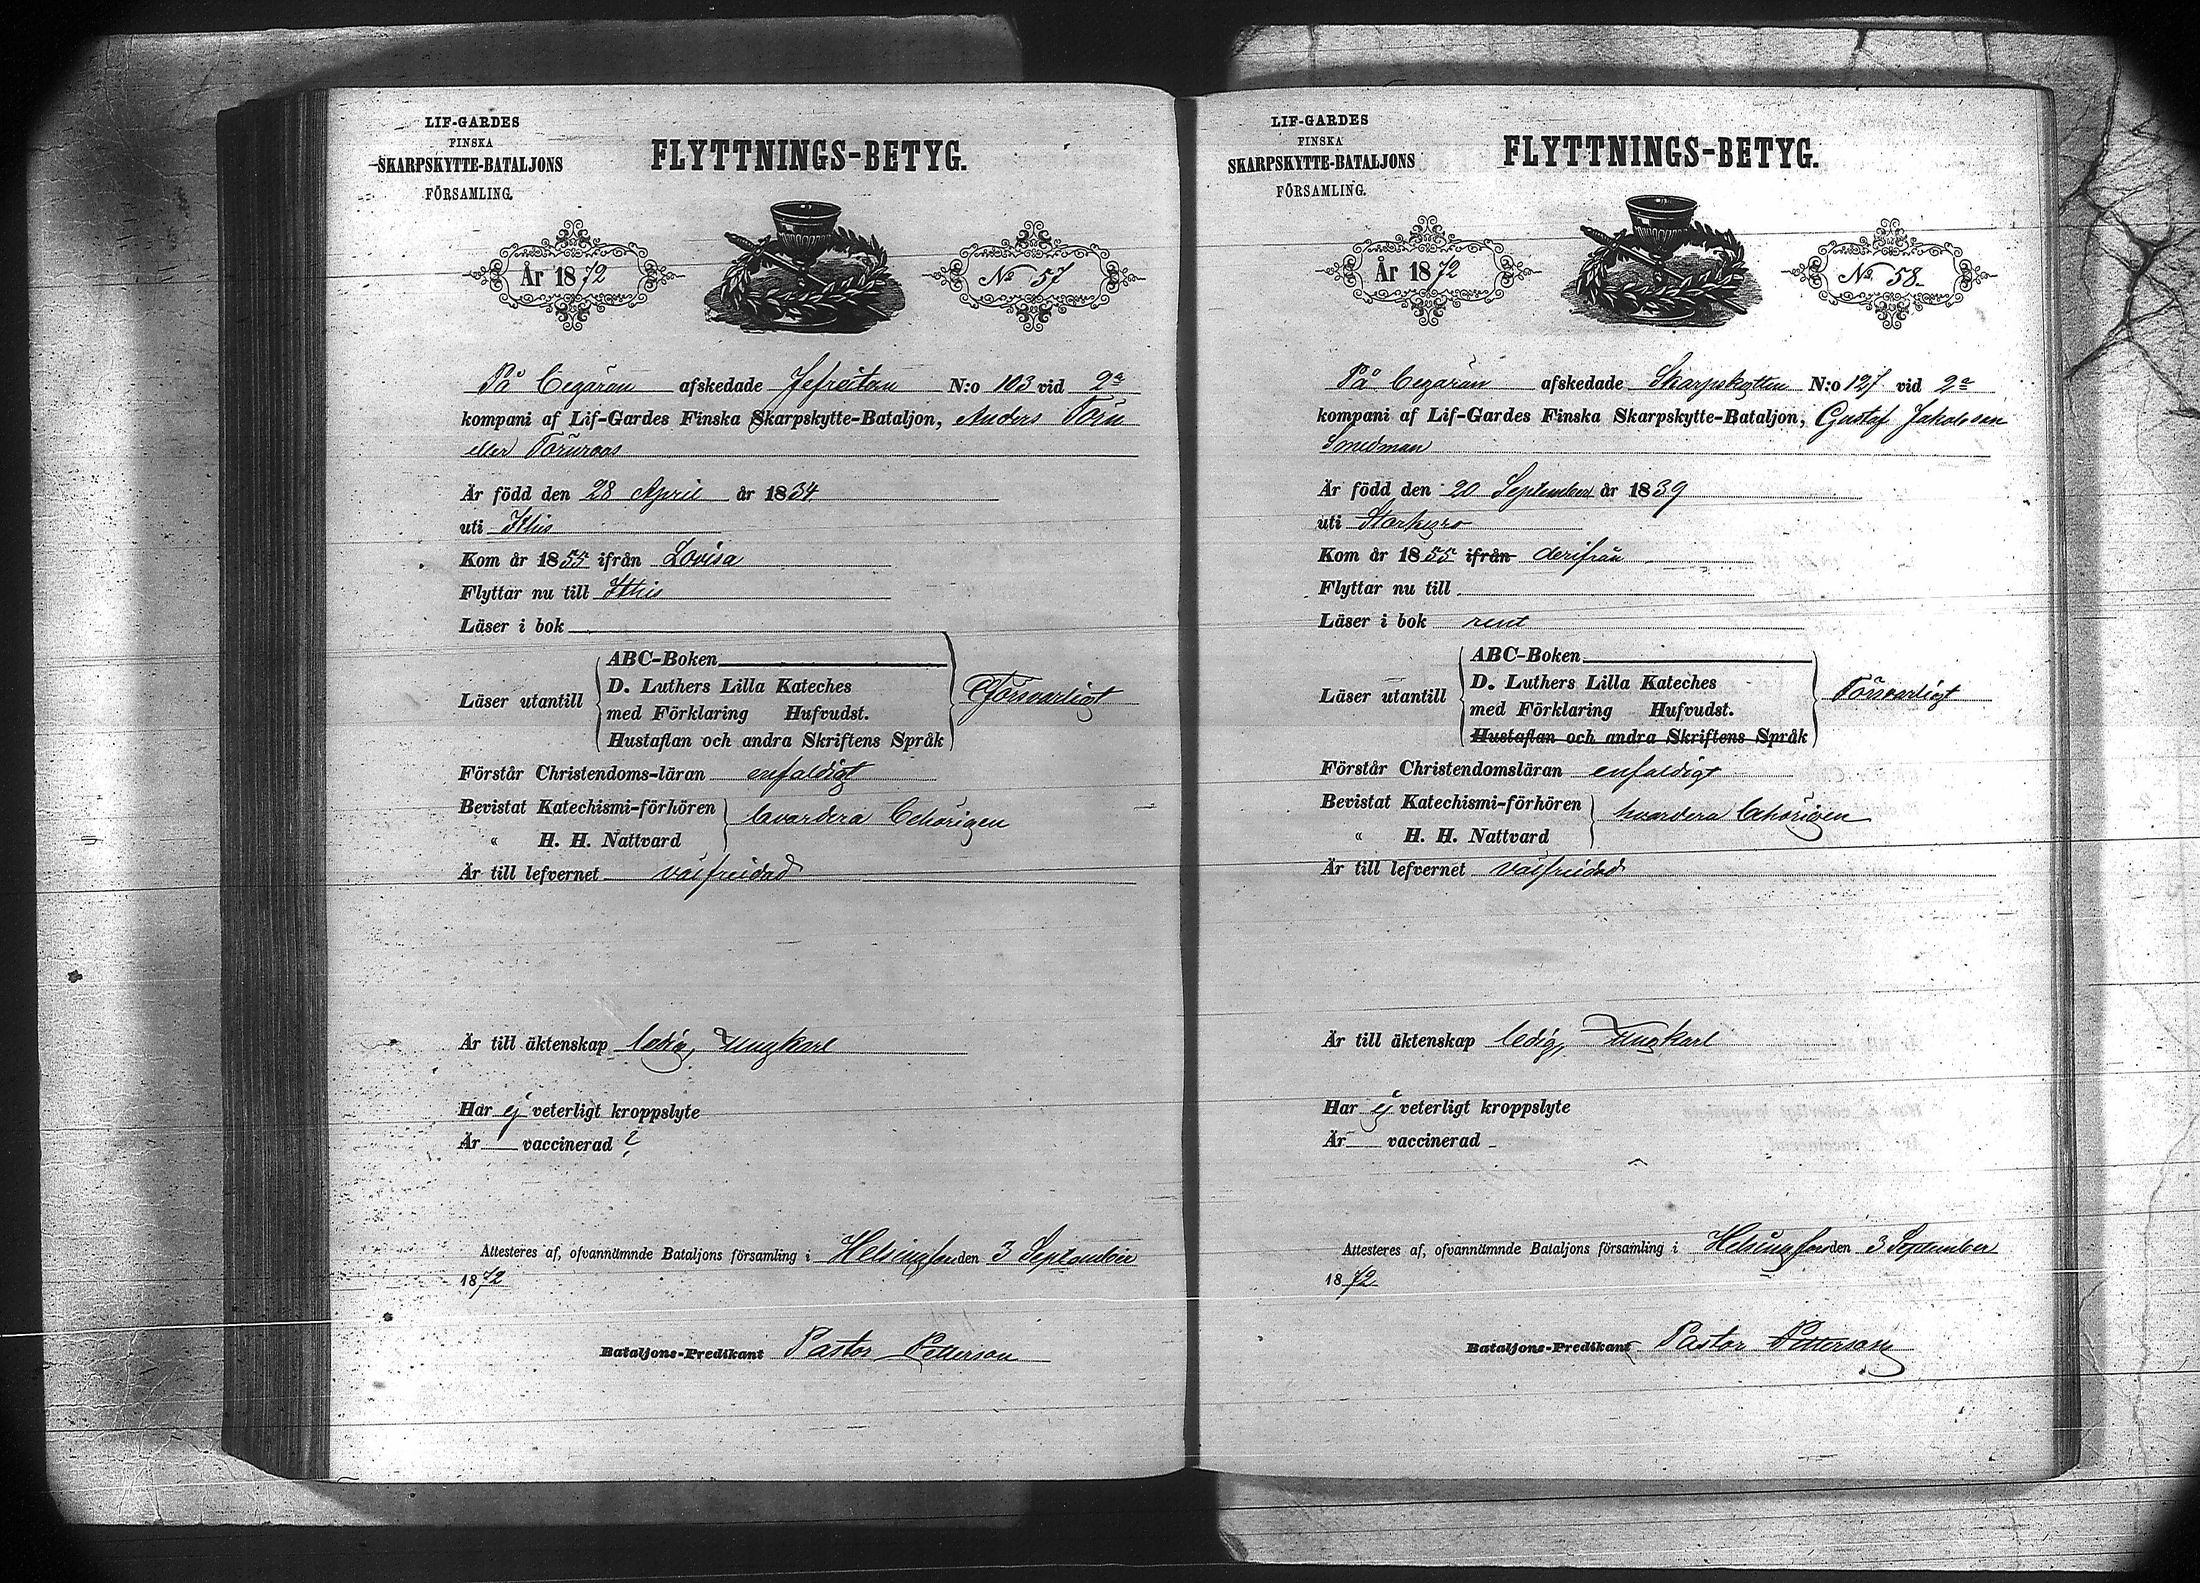 LIF-GARDES
FINSKA
SKARPSKYTTE-BATALJONS
FÖRSAMLING.
FLYTTNINGS-BETYG.
År 1872
No 57
På begäran afskedade Jefreitern N:o 103 vid 2a
kompani af Lif-Gardes Finska Skarpskytte-Bataljon, Anders
eller
Är född den 28 April år 1834
uti Ithis
Kom år 1855 ifrån Lovisa
Flyttar nu till Ithis
Läser i bok
ABC-Boken
Läser utantill
D. Luthers Lilla Kateches
med Förklaring Hufvudst.
Hustaflan och andra Skriftens Språk
Försvarligt
Förstår Christendoms-läran enfaldigt
Bevistat Katechismi-förhören
" H. H. Nattvard
hvardera behörigen
Är till lefvernet välfreidad
Är till äktenskap ledig, Ungkarl
Har ej veterligt kroppslyte
Är vaccinerad ?
Attesteres af, ofvannämnde Bataljons församling i Helsingfors den 3 September
1872
Bataljons-Predikant Pastor Petterson
LIF-GARDES
FINSKA
SKARPSKYTTE-BATALJONS
FÖRSAMLING.
FLYTTNINGS-BETYG.
År 1872
No 58
På begäran afskedade Skarpskytten N:o 127 vid 2a
kompani af Lif-Gardes Finska Skarpskytte-Bataljon, Gustaf Jakobsson
Smedman
Är född den 20 September år 1839
uti Storkyro
Kom år 1855 ifrån derifrån
Flyttar nu till
Läser i bok rent
ABC-Boken
Läser utantill
D. Luthers Lilla Kateches
med Förklaring Hufvudst.
Hustaflan och andra Skriftens Språk
Försvarligt
Förstår Christendomsläran enfaldigt
Bevistat Katechismi-förhören
" H. H. Nattvard
hvardera behörigen
Är till lefvernet välfreidad
Är till äktenskap ledig, Ungkarl
Har ej veterligt kroppslyte
Är vaccinerad
Attesteres af, ofvannämnde Bataljons församling i Helsingfors den 3 September
1872
Bataljons-Predikant Pastor Petterson